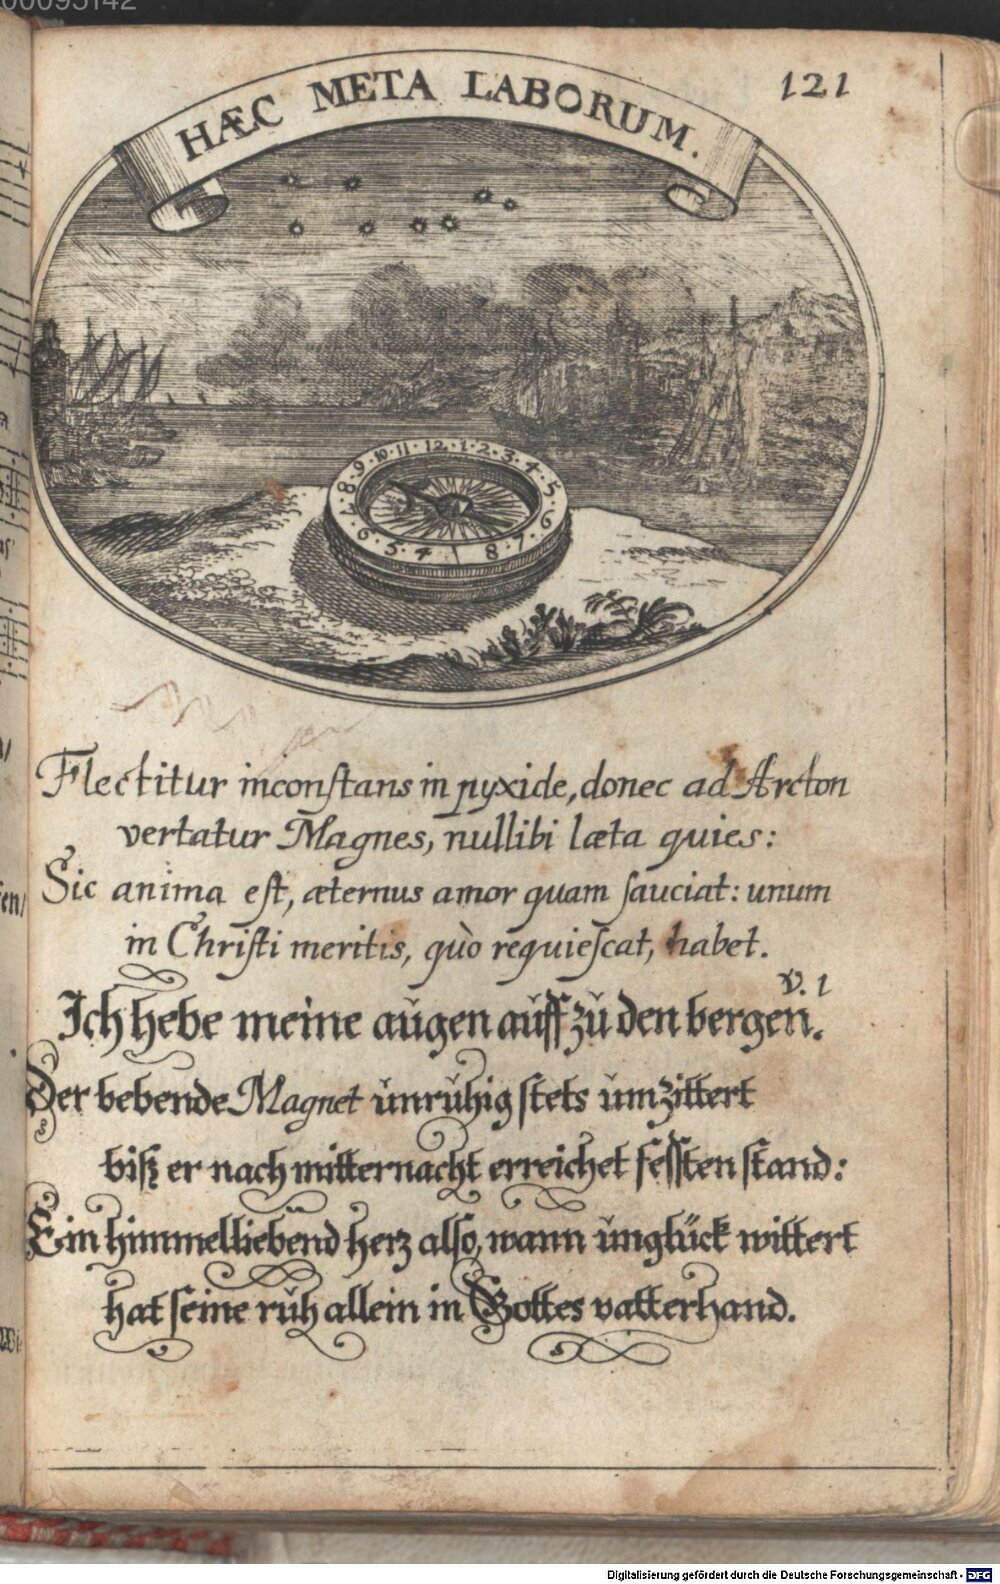 121
HÆC META LABORUM.
·8·9·10·11·12·1·2·3·4·5·6·7·8
4·5·6
Flectitur inconſtans in pyxide, donec ad Arcton
vertatur Magnes, nullibi læta quies:
Sic anima eſt, æternus amor quam ſauciat: unum
in Chriſti meritis, quò requieſcat, habet.
v. 1
Ich hebe meine aŭgen aŭff zŭ den bergen.
Der bebende Magnet ŭnrŭhig ſtets ŭmzittert
biſz er nach mitternacht erreichet feſſten ſtand:
Ein himmelliebend herz alſo, wann ŭnglück wittert
hat ſeine rŭh allein in Gottes vatterhand.
Digitalisierung gefördert durch die Deutsche Forschungsgemeinschaft - DFG